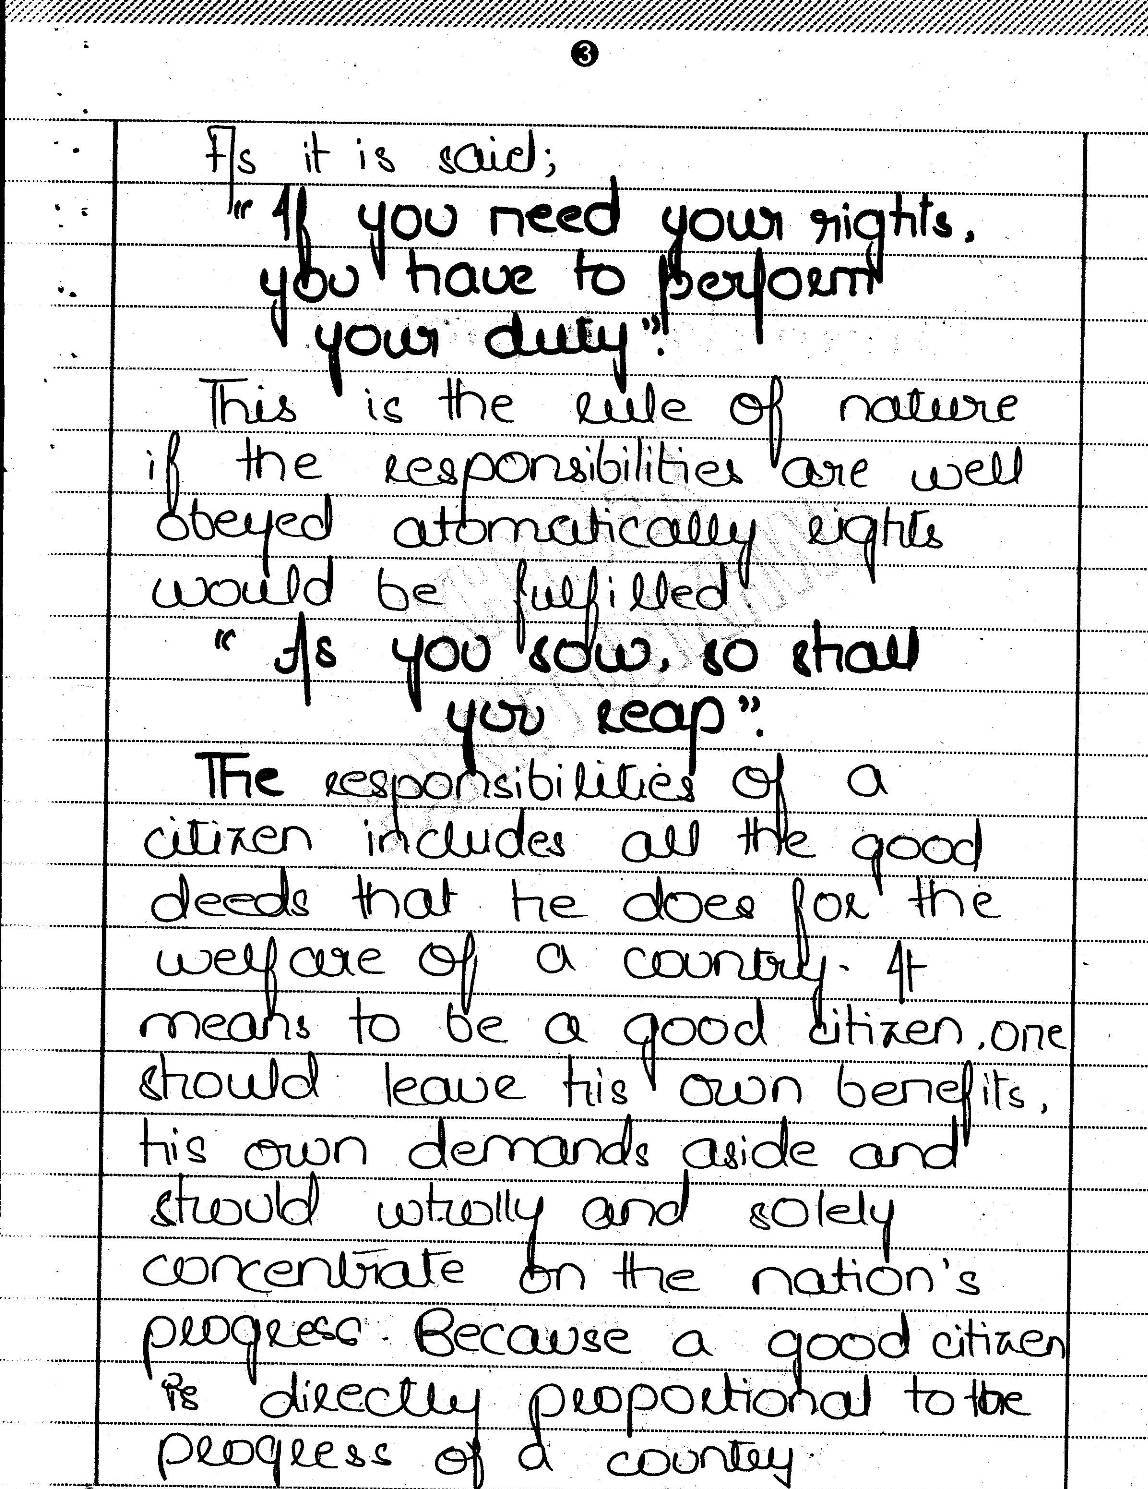 3
As it is said;
"If you need your rights,
you have to perform
your duty".
This is the rule of nature
if the responsibilities are well
obeyed atomatically rights
would be fulfilled
"As you sow, so shall
you reap".
The responsibilities of a
citizen includes all the good
deeds that he does for the
welfare of a country. It
means to be a good citizen, one
should leave his own benefits,
his own demands aside and
should wholly and solely
concentrate on the nation's
progress. Because a good citizen
is directly proportional to the
progress of a country.